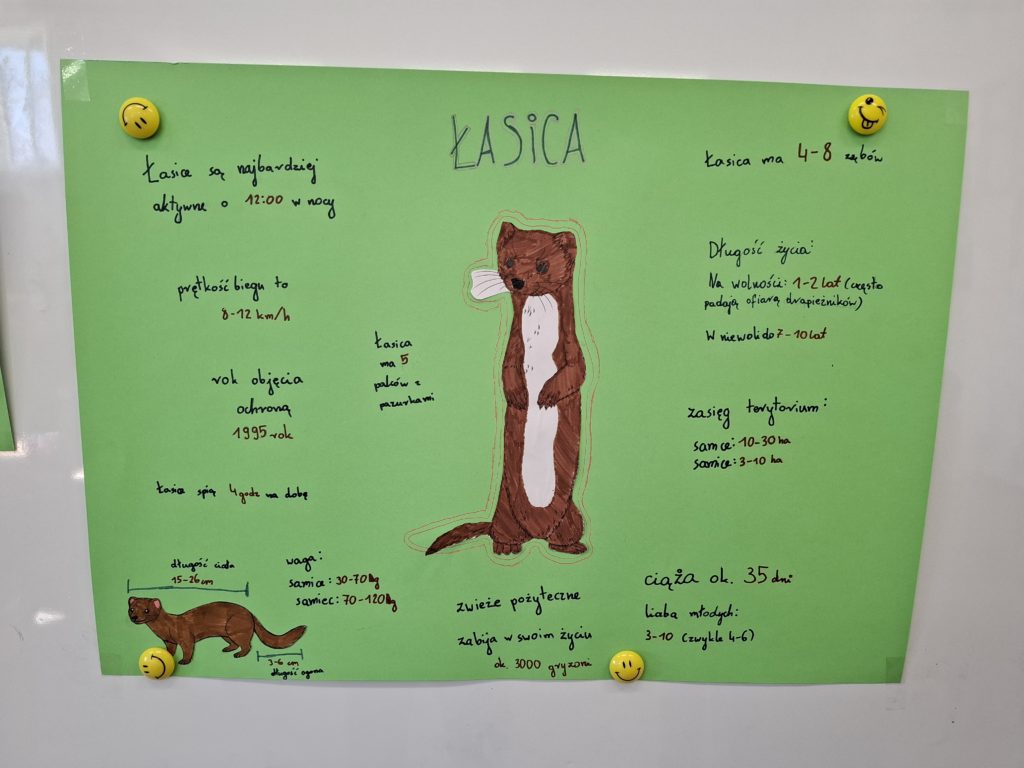 ŁASICA
Łasice są najbardziej
aktywne o 12:00 w nocy
prętkość biegu to
8-12 km/h
rok objęcia
ochroną
1995 rok
Łasice śpią 4 godz na dobę
długość ciała
15-26 cm
3-6 cm
długość ogona
waga:
samice: 30-70kg
samiec: 70-120kg
Łasica
ma 5
palców z
pazurkami
zwieże pożyteczne
zabija w swoim życiu
ok. 3000 gryzoni
Łasica ma 4-8 zębów
Długość życia:
Na wolności: 1-2 lat (często
padają ofiarą drapieżników)
W niewoli do 7-10 lat
zasięg terytorium:
samce: 10-30 ha
samice: 3-10 ha
ciąża ok. 35 dni
liczba młodych:
3-10 (zwykle 4-6)